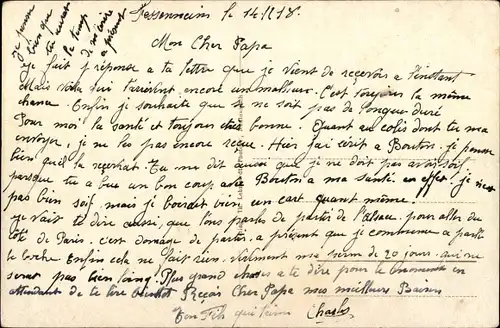 Fessenheim le 14/1/18.
je pense
bien que
tu auras
le temps
de m'écrire
a présent
Mon Cher Papa
Je fait réponse a ta lettre que je vient de reçevoir a l'instant
Mais voila qui t'arrivent encore un malheur. C'est toujours la même
chance. Enfin je souhaite que se ne soit pas de longue duré
Pour moi la santé et toujour très bonne. Quant au colis dont tu ma
envoyer, je ne les pas encore reçue. Hier j'ai écrit a Bouton. je pense
bien qu'il le recevrat. Tu me dit aussi que je ne doit pas avoir soif
parsque tu a bue un bon coup avec Bouton a ma santé en effet je n'est
pas bien soif, mais je boirait bien un cart quant même.
je vait te dire aussi, que l'ons parles de partir de l'Alsace. pour aller du
côté de Paris, c'est domage de partir, a présent que je commence a parler
le boche. Enfin cela ne fait rien. vivement ma perm de 20 jours. qui ne
serat pas bien long. Plus grand choses a te dire pour le moment en
attendant de te lire bientot Reçois Cher Papa mes meilleurs Baisers
Ton Fils qui t'aime Charles